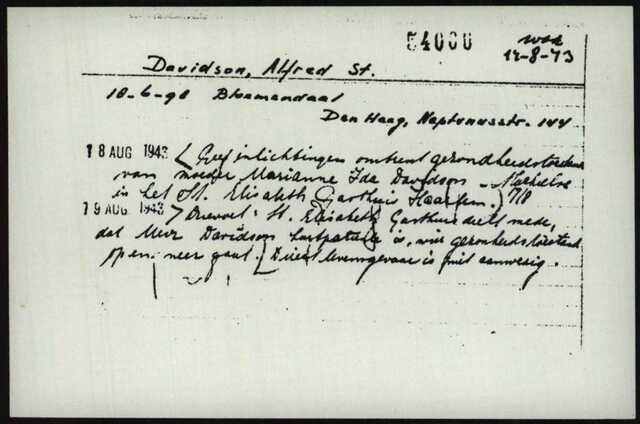 54000
12-8-73
Davidson, Alfred St.
10-6-98 Bloemendaal
Den Haag, Neptunusstr. 144
18 AUG 1943 < Geef inlichtingen omtrent gezondheidstoestand
van moeder Marianne Ida Davidson
in het St. Elisabeth Gasthuis Haarlem.) 7/8
19 AUG 1943 > St. Elisabeth Gasthuis deelt mede,
dat Mevr Davidson hartpatiënte is, wier gezondheidstoestand
op en neer gaat. Direct levensgevaar is niet aanwezig.